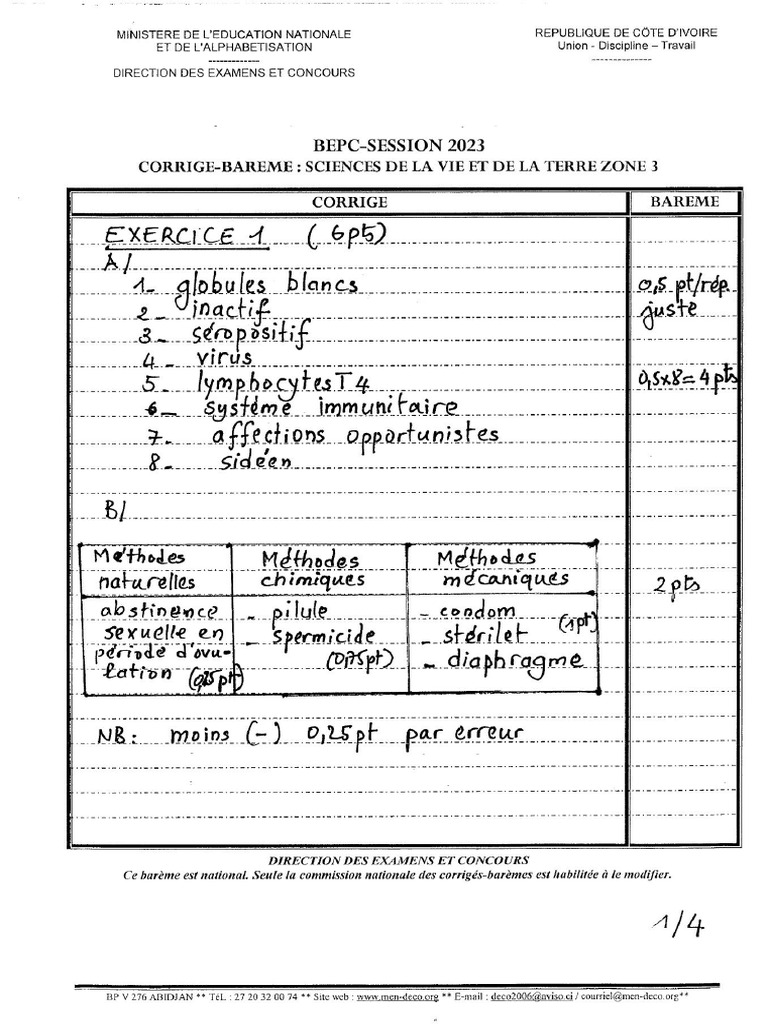 MINISTERE DE L'EDUCATION NATIONALE
ET DE L'ALPHABETISATION
-------------
DIRECTION DES EXAMENS ET CONCOURS
REPUBLIQUE DE CÔTE D'IVOIRE
Union - Discipline – Travail
--------------
BEPC-SESSION 2023
CORRIGE-BAREME : SCIENCES DE LA VIE ET DE LA TERRE ZONE 3
CORRIGE BAREME
EXERCICE 1 ( 6pts)
A/
1- globules blancs 0,5 pt/rép
2- inactif juste
3- séropositif
4- virus
5- lymphocytes T4 0,5x8= 4pts
6- système immunitaire
7- affections opportunistes
8- sidéen
B/
Méthodes naturelles
Méthodes chimiques
Méthodes mécaniques
2pts
abstinence
sexuelle en
période d'ovu-
lation (0,25pt)
- pilule
- spermicide
(0,75pt)
- condom
- stérilet (1pt)
- diaphragme
NB: moins (-) 0,25pt par erreur
DIRECTION DES EXAMENS ET CONCOURS
Ce barème est national. Seule la commission nationale des corrigés-barèmes est habilitée à le modifier.
1/4
BP V 276 ABIDJAN ** TéL : 27 20 32 00 74 ** Site web : www.men-deco.org ** E-mail : deco2006@aviso.ci / courriel@men-deco.org**